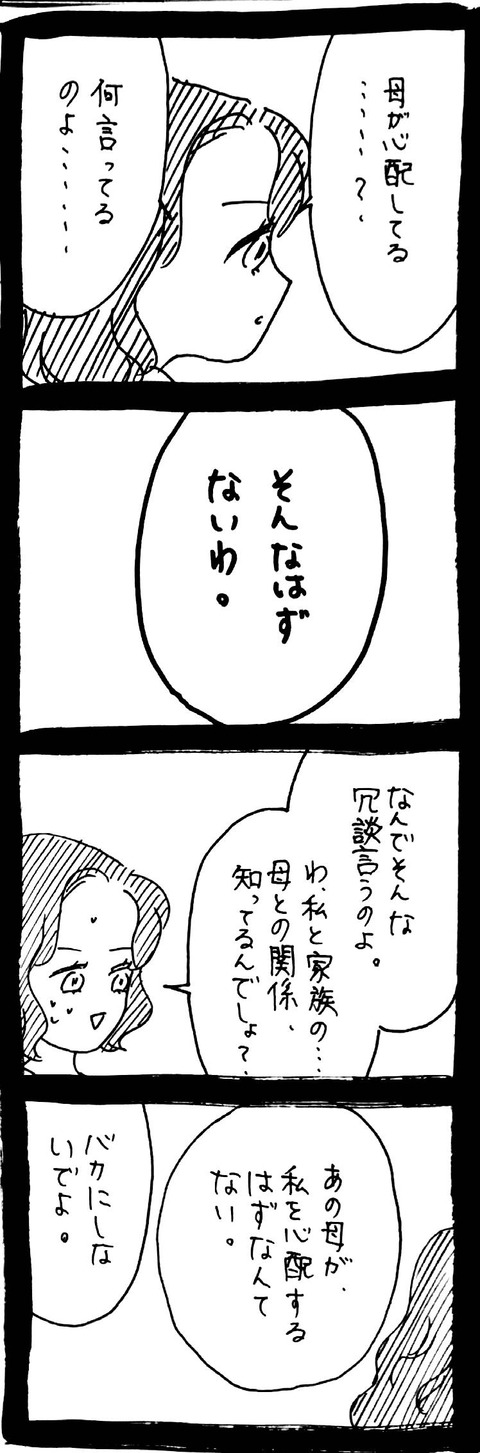 母が心配してる
……？
何言ってる
のよ……
そんなはず
ないわ。
なんでそんな
冗談言うのよ。
わ、私と家族の…
母との関係、
知ってるんでしょ？
あの母が、
私を心配する
はずなんて
ない。
バカにしな
いでよ。